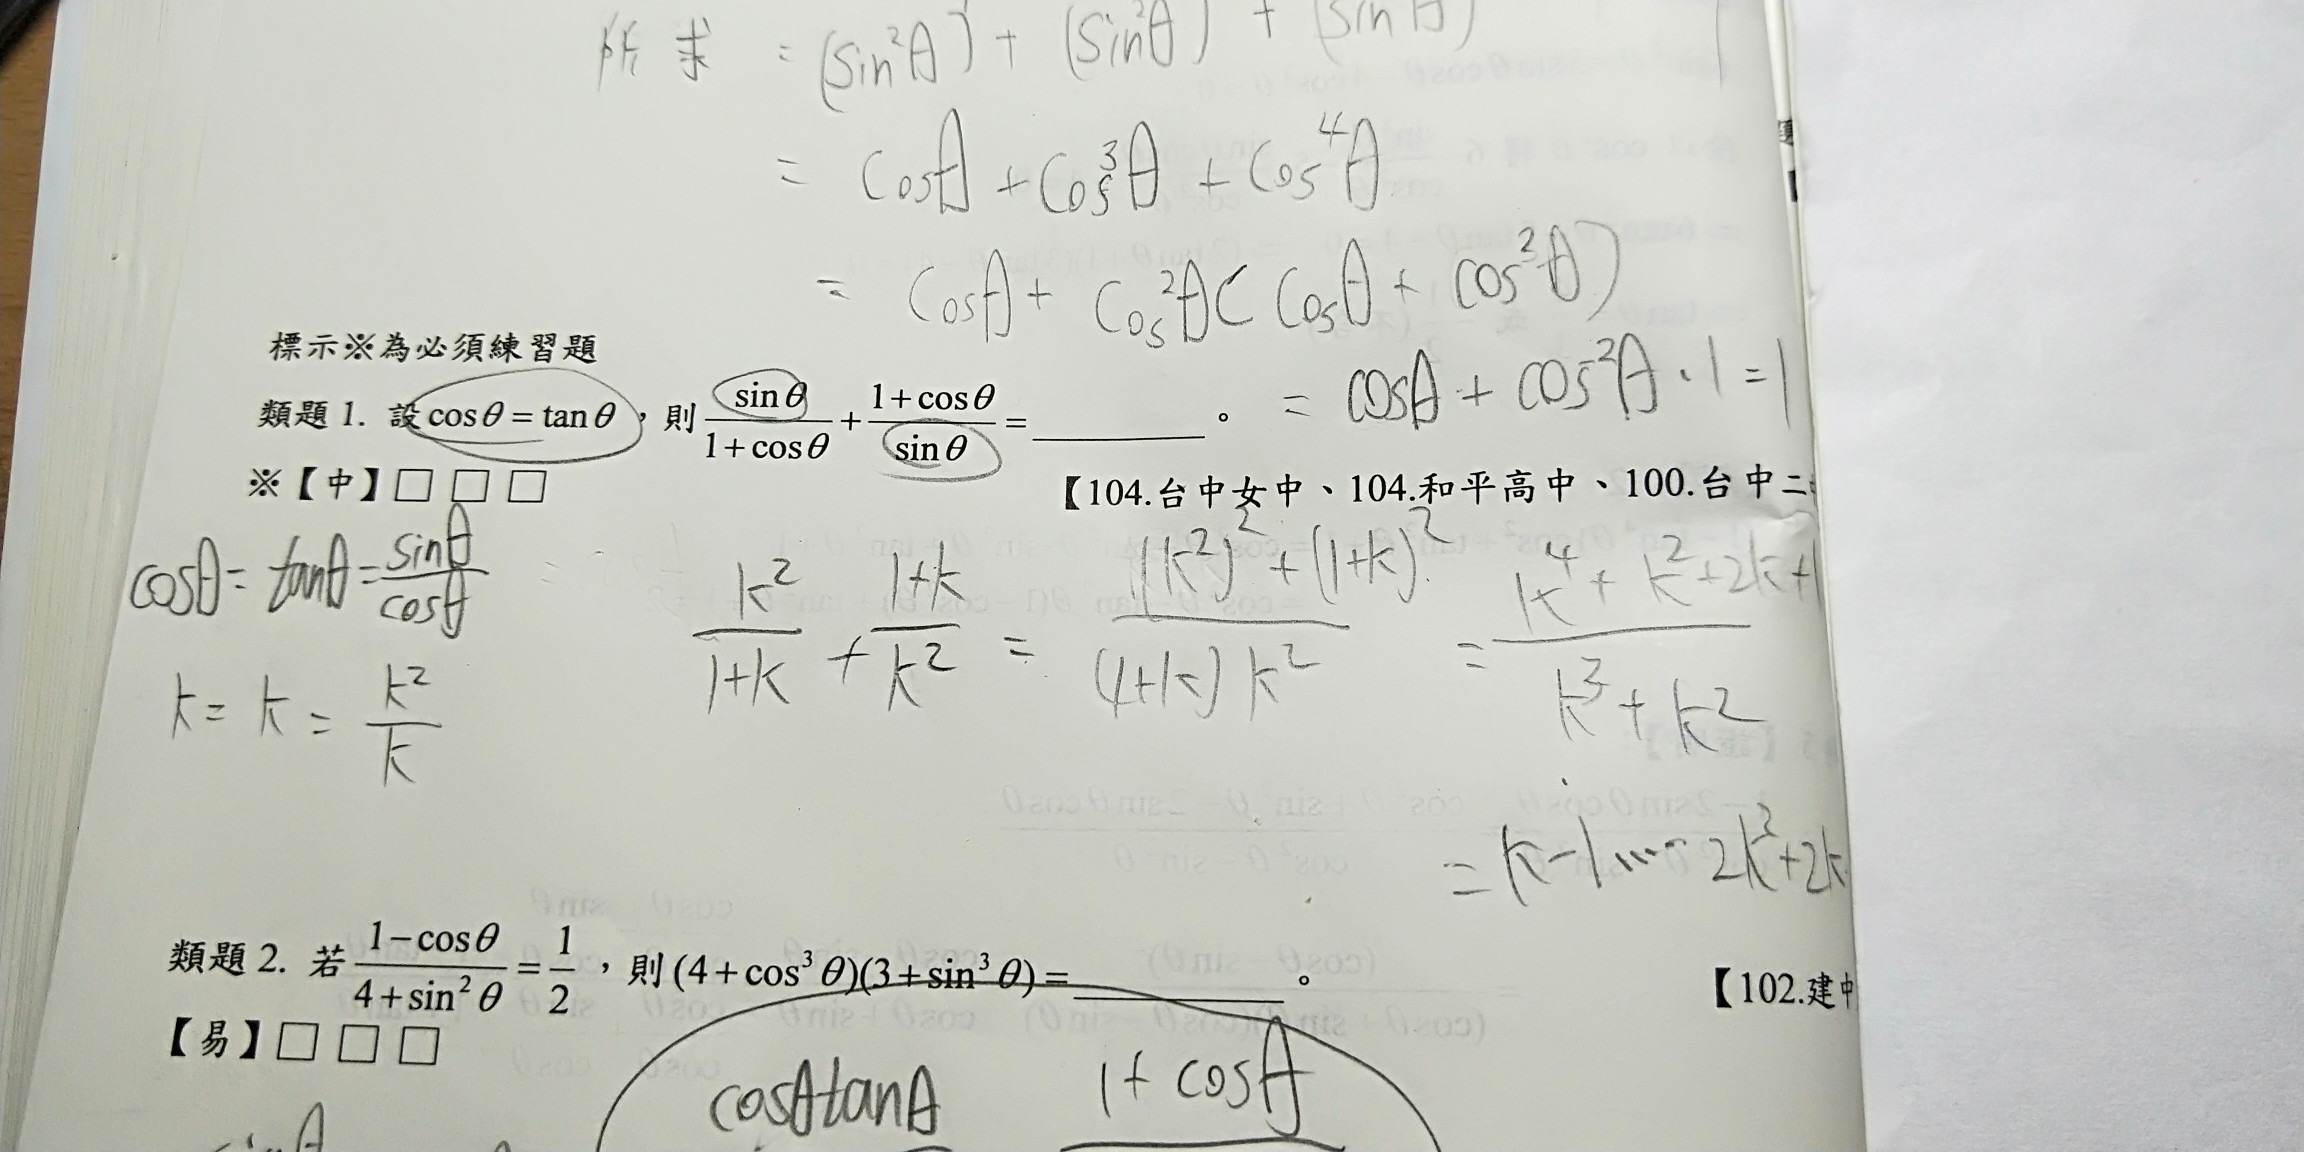 所求 = (sin²θ) + (sin²θ) + (sin θ)
= cosθ + cos³θ + cos⁴θ
= cosθ + cos²θ( cosθ + cos²θ)
= cosθ + cos²θ · 1 = 1
標示※為必須練習題
類題 1. 設 cosθ = tanθ，則 sinθ/(1+cosθ) + (1+cosθ)/sinθ = ________。
※【中】□ □ □
【104.台中女中、104.和平高中、100.台中二
cosθ = tanθ = sinθ/cosθ
k²/(1+k) + (1+k)/k² = ((k²)² + (1+k)²)/((1+k)k²) = (k⁴ + k² + 2k + 1)/(k³ + k²)
k = k = k²/k
= k-1 ... 2k²+2k
類題 2. 若 (1−cosθ)/(4+sin²θ) = 1/2，則 (4+cos³θ)(3+sin³θ) = ________。
【102.建中
【易】□ □ □
cosθtanθ 1+cosθ